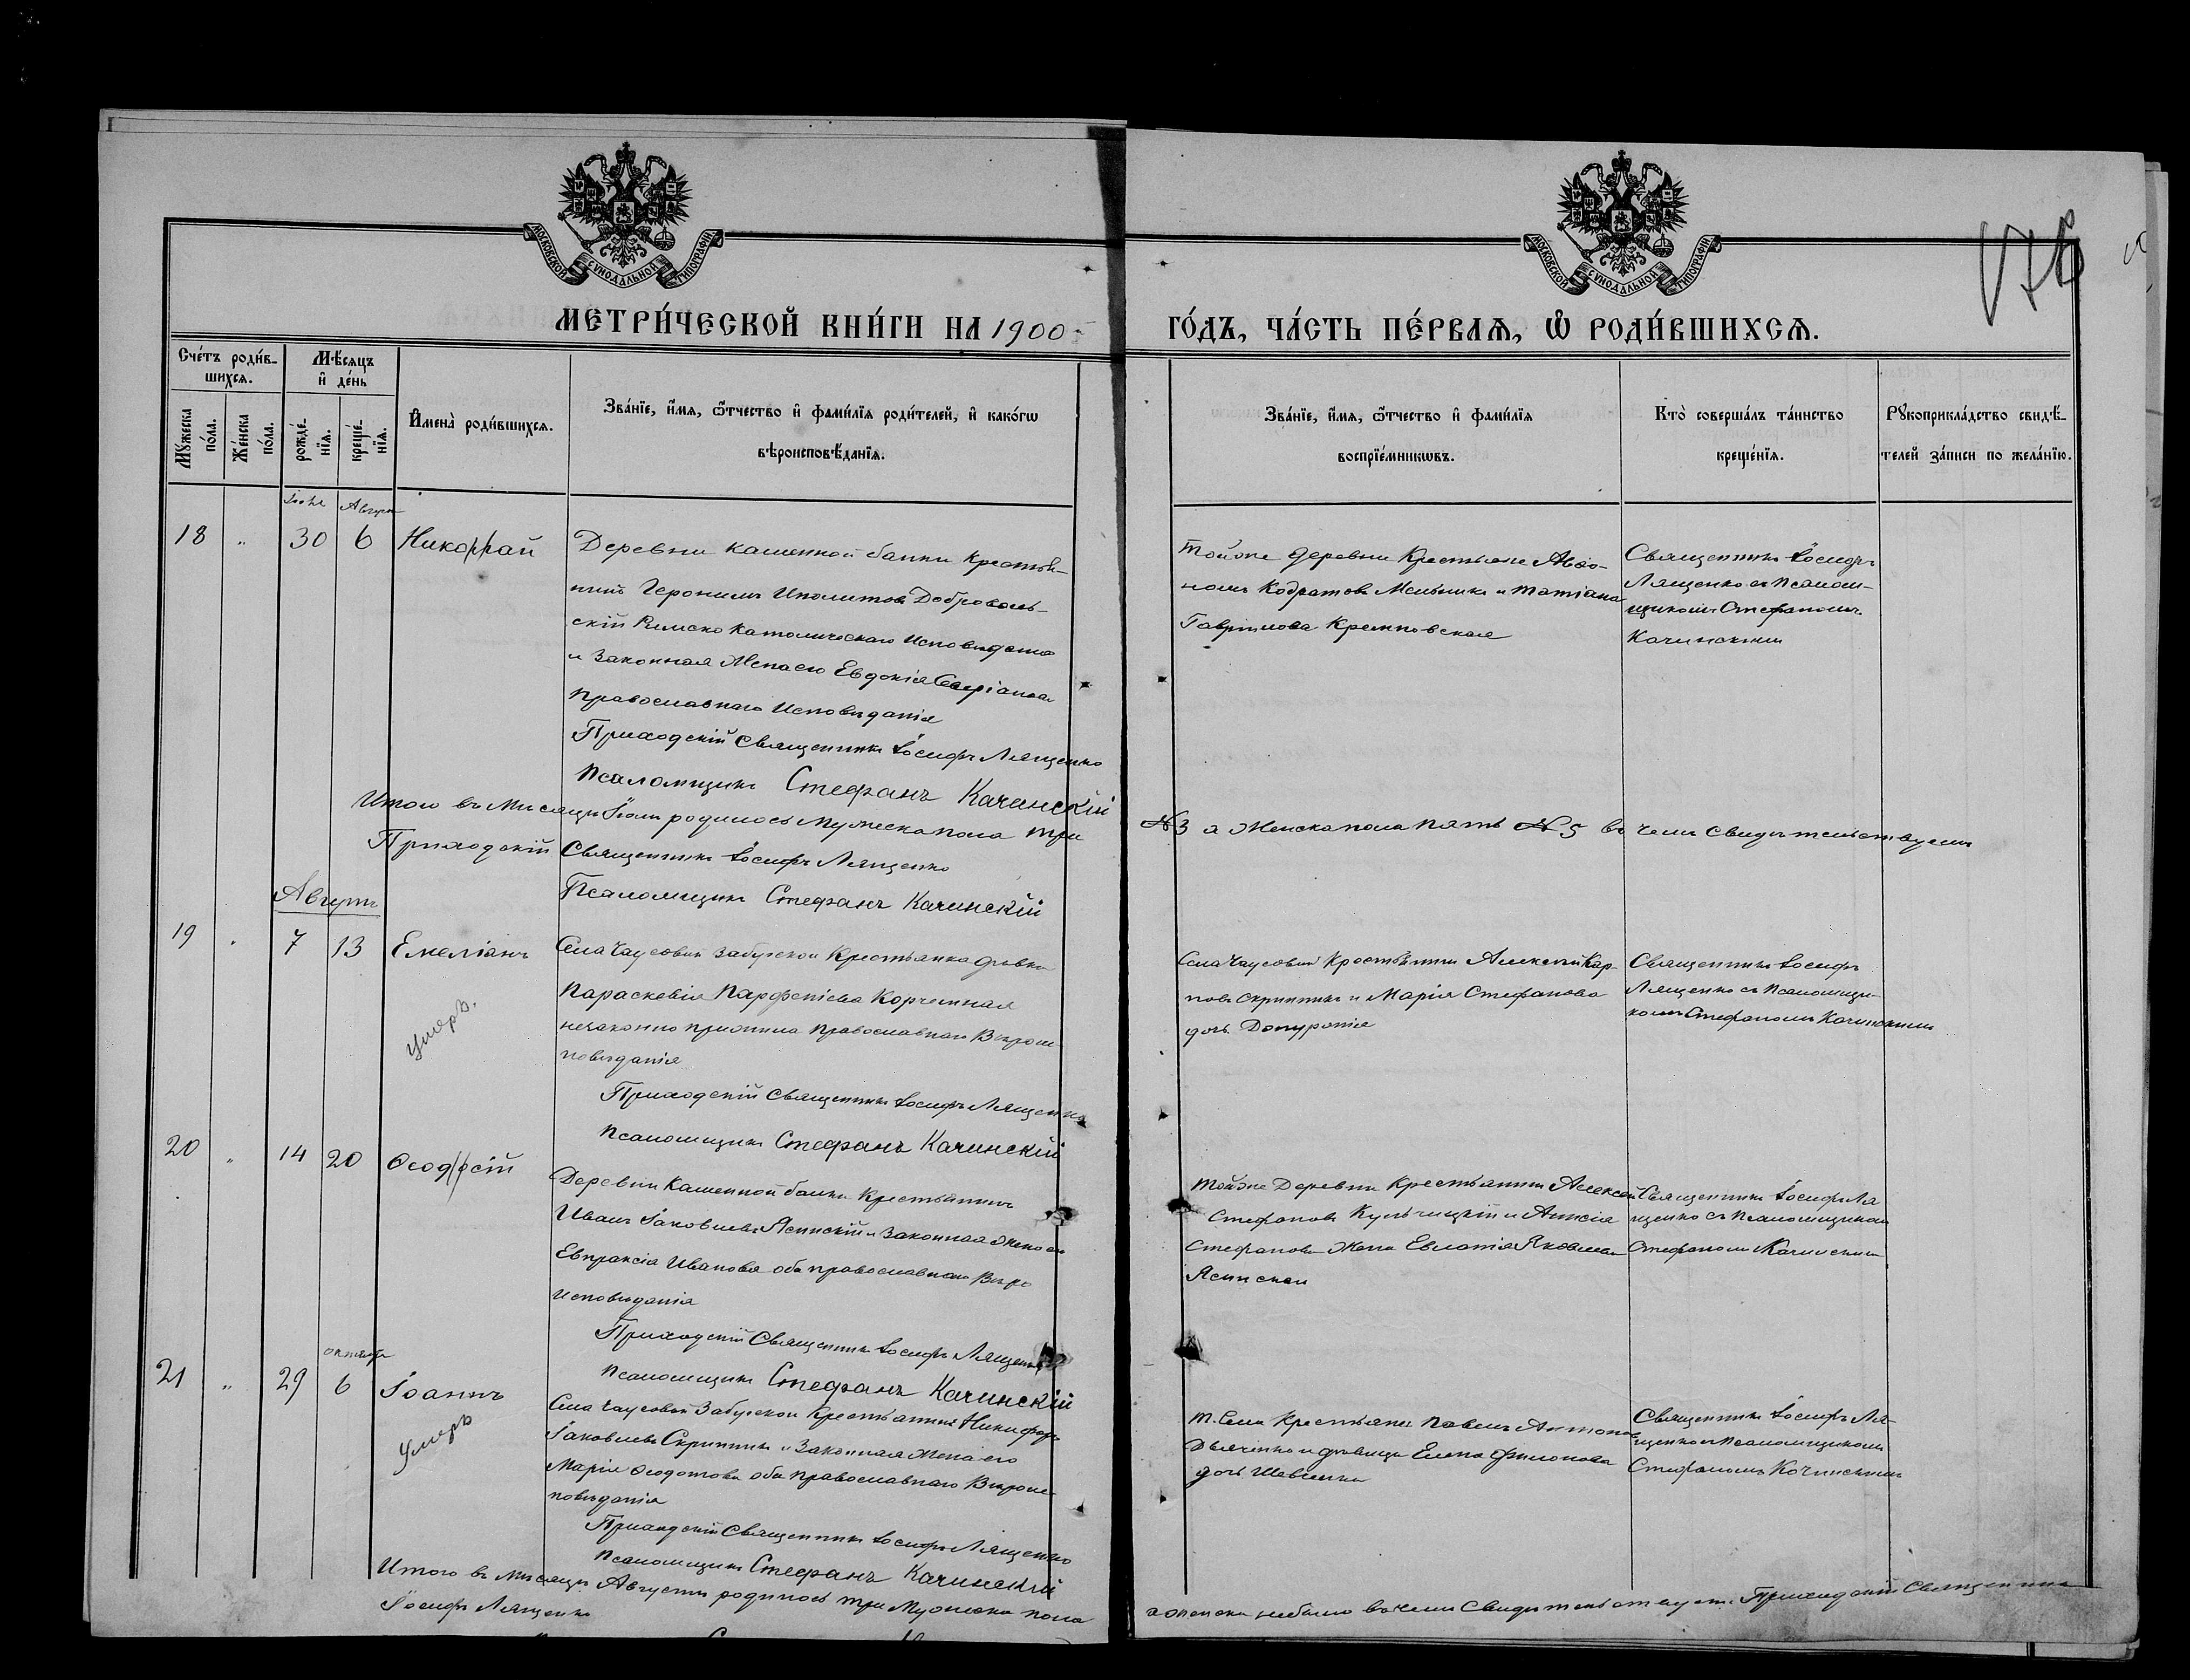 МОСКОВСКОЙ СѴНОДАЛЬНОЙ ТИПОГРАФІИ
МОСКОВСКОЙ СѴНОДАЛЬНОЙ ТИПОГРАФІИ
МЕТРИ́ЧЕСКОЙ КНИ́ГИ НА 1900
ГО́ДЪ, ЧА́СТЬ ПЕ́РВАѦ, Ѡ҆ РОДИ́ВШИХСѦ.
Сче́тъ роди́в-
шихсѧ.
Мѣ́сѧцъ
и҆ де́нь
Мꙋ́жеска
по́ла.
Же́нска
по́ла.
рожде́-
нїѧ.
креще́-
нїѧ.
И҆мена̀ роди́вшихсѧ.
Зва́нїе, и҆́мѧ, ѻ҆́тчество и҆ фами́лїѧ роди́телей, и҆ како́гѡ
вѣроисповѣ́данїѧ.
Зва́нїе, и҆́мѧ, ѻ҆́тчество и҆ фами́лїѧ
воспрїе́мникѡвъ.
Кто̀ соверша́лъ та́инство
креще́нїѧ.
Рꙋкоприкла́дство свидѣ́-
телей за́писи по жела́нїю.
18 " 30 6 Николай
Деревни Каменной балки Крестья-
нинъ Иеронимъ Иполитовъ Доброволь-
скій Римско Католическаго Исповѣданія
и Законная Жена его Евдокія
Православнаго Исповѣданія
Приходскій Священникъ Іосифъ Лященко
Псаломщикъ Стефанъ Качинскій
Тойже деревни Крестьяне
Кодратовъ Мельникъ и Татіана
Гавріилова
Священникъ Іосифъ
Лященко съ Псалом-
щикомъ Стефаномъ
Качинскимъ
Итого въ Мѣсяцѣ Іюлѣ родилось Мужеска пола три
№ 3 а Женска пола пять № 5 въ чемъ Свидѣтельствуемъ
Приходскій Священникъ Іосифъ Лященко
Псаломщикъ Стефанъ Качинскій
Августъ
19 " 7 13 Емеліанъ
умеръ.
Села Чаусовой Забугской Крестьянка дѣвка
Параскевія Парфеніева Корчемная
незаконно прижила Православнаго Вѣроис-
повѣданія
Приходскій Священникъ Іосифъ Лященко
Псаломщикъ Стефанъ Качинскій
Села Чаусовой Крестьянинъ Алексѣй Кар-
повъ Скрипникъ и Марія Стефанова
дочь
Священникъ Іосифъ
Лященко съ Псаломщи-
комъ Стефаномъ Качинскимъ
20 " 14 20 Ѳеодосій
Деревни Каменной балки Крестьянинъ
Иванъ Іаковлевъ Ясинскій и Законная Жена его
Евпраксія Иванова оба православнаго Вѣро
исповѣданія
Приходскій Священникъ Іосифъ Лященко
Псаломщикъ Стефанъ Качинскій
Тойже Деревни Крестьянинъ Алексѣй
Стефановъ Кульчицкій и Анисія
Стефанова Жена Яковлева
Ясинская
Священникъ Іосифъ Ля
щенко съ Псаломщикомъ
Стефаномъ Качинскимъ
21 " 29 6 Іоаннъ
Умеръ
Села Чаусовой Забугской Крестьянинъ Никифоръ
Іаковлевъ Скрипникъ и Законная Жена его
Марія Ѳеодотова оба православнаго Вѣроис-
повѣданія
Приходскій Священникъ Іосифъ Лященко
Псаломщикъ Стефанъ Качинскій
т. Села Крестьяне Павелъ Антоновъ
Дьяченко и дѣвица Елена Филонова
дочь Шевченка
Священникъ Іосифъ Ля-
щенко съ Псаломщикомъ
Стефаномъ Качинскимъ
Итого въ Мѣсяцѣ Августѣ родилось три Мужеска пола
а женска небыло въ чемъ Свидѣтельствуемъ Приходскій Священникъ
Іосифъ Лященко